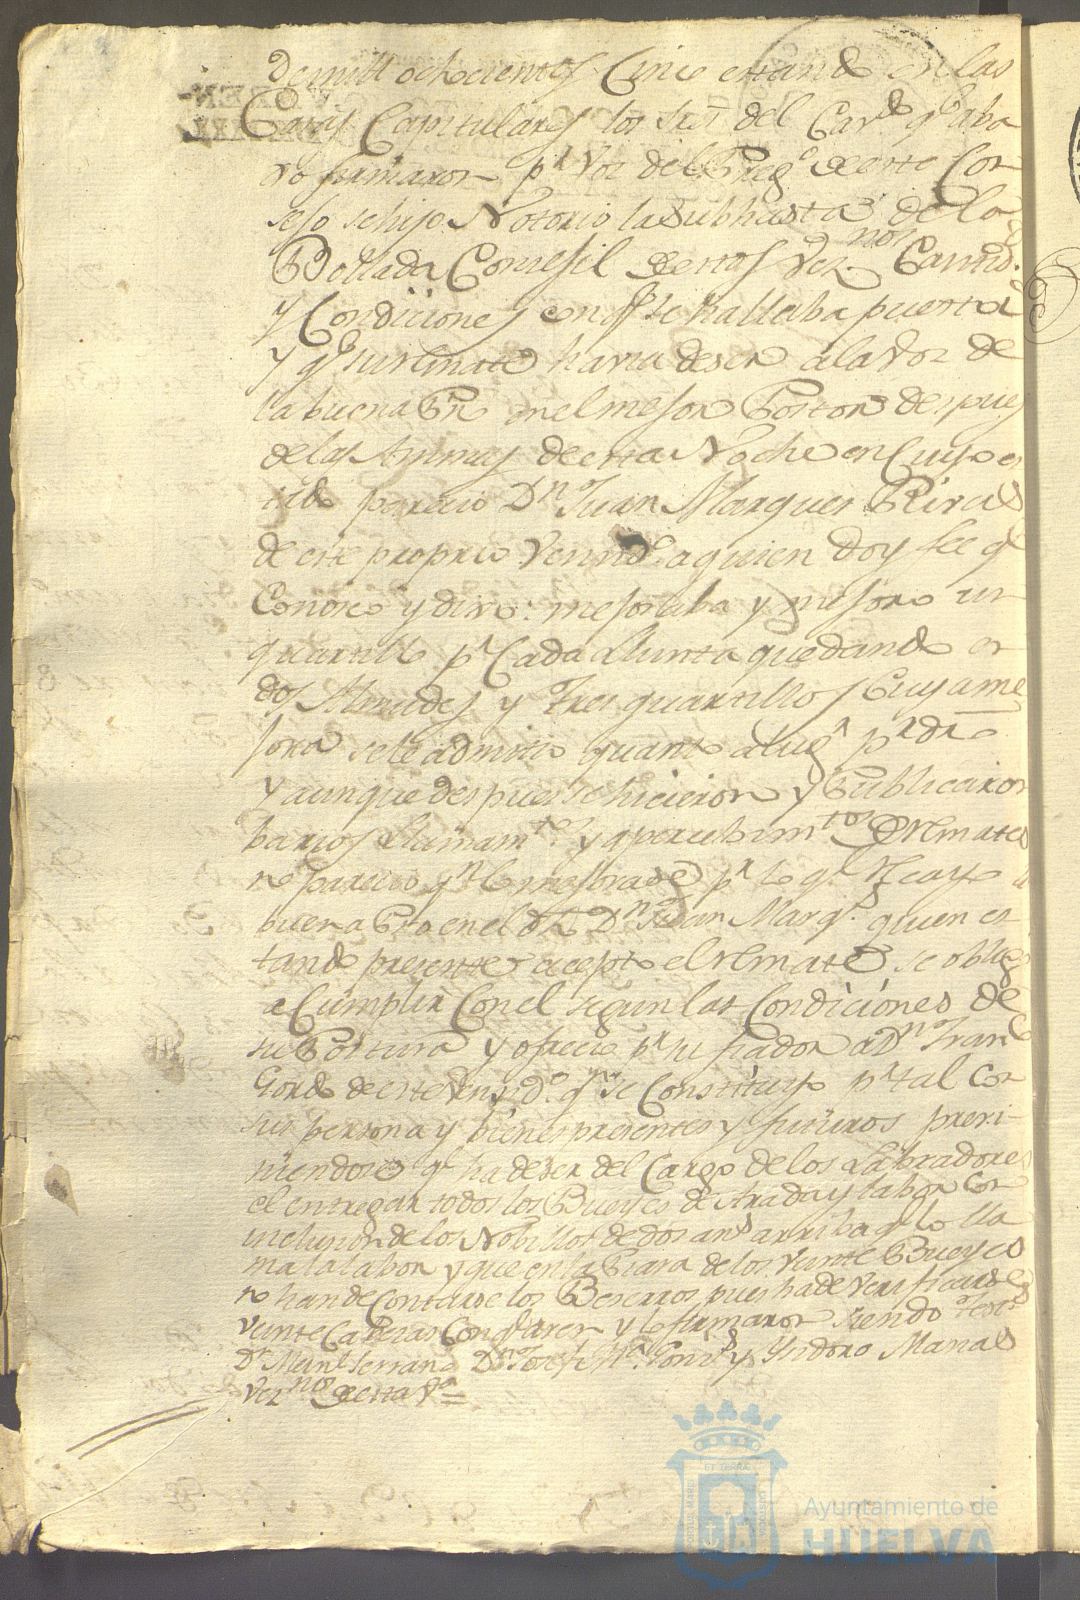 de mill ochocientos Cinco estando en las
Casas Capitulares los Sres del Cavdo qe abaxo
xo firmaron pr Voz del Preg.o de este Con
sejo se hizo Notorio la Subhasta de la
Bollada Consejil de estos Veznos Cantid.
y Condiciones en qe se hallaba puesta
y qe su remate havia de ser a la Voz de
la buena Pro en el mejor Postor despues
de las Animas de esta Noche en Cuyo es
tado parecio Dn Juan Marquez Rivas
de este propio Vecind.o a quien doy fee qe
Conosco y dixo: mejoraba y mejoro un
quartillo pr Cada Yunta quedando en
dos Almudes y tres quartillos Cuya me
jora se le admitio quanto a lugr pr dro
y aunque despues se hicieron y Publicaron
barios Llamamtos y apercebimtos de remate
no parecio qn lo mejorase pr lo qe Recayo la
buena Pro en el dho Dn Juan Marqz quien es
tando presente acepto el remate se obligo
a Cumplir Con el segun las Condiciones de
su Postura y ofrecio pr su fiador a Dn Franco
Gordo de este Vecind.o qn se Constituyo pr tal Con
sus persona y bienes presentes y futuros previ-
niendose qe ha de ser del Cargo de los Labradores
el entregar todos los Bueyes de Arada y labor Con
inclusion de los Nobillos de dos ans arriba qe lo lla
ma la labor y que en la Piara de los veinte Bueyes
no han de Contarse los Beserros pues ha de verificarse
veinte Caveras y lo firmaron siendo testos
Dn Manl Serrano Dn Josef Ma y Ysidoro Manas
Veznos de esta Va =
Ayuntamiento de
HUELVA